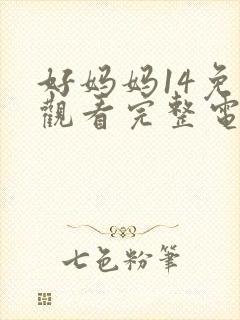 好妈妈14免
觀看完整電
七色粉筆